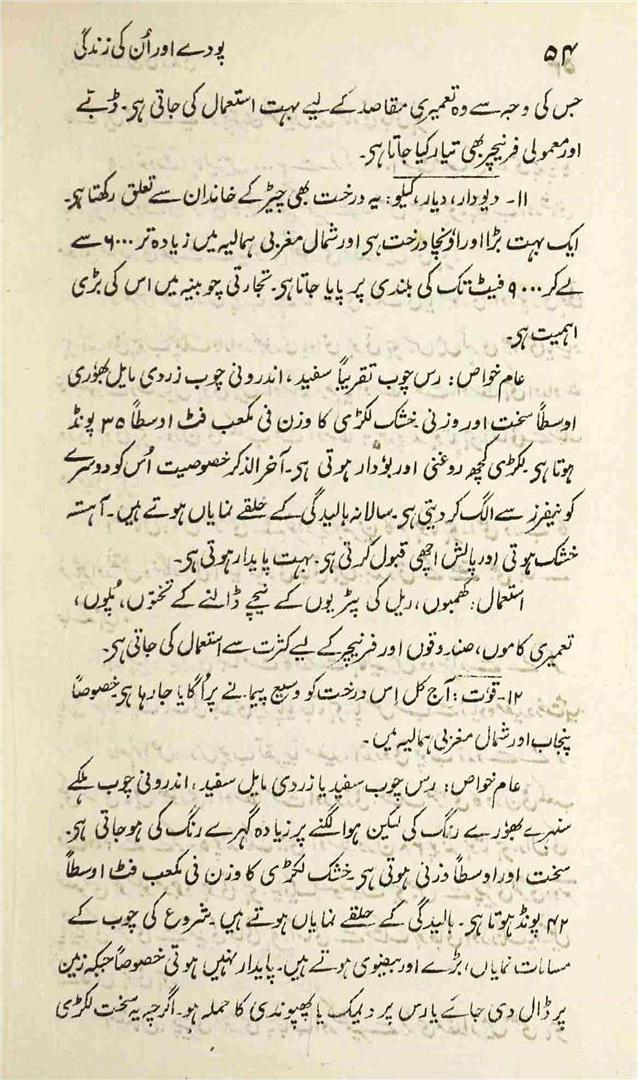 ۵۴ پودے اور اُن کی زندگی
جس کی وجہ سے وہ تعمیری مقاصد کے لیے بہت استعمال کی جاتی ہی۔ ڈبّے
اور معمولی فرنیچر بھی تیار کیا جاتا ہی۔
۱۱۔ دیودار، دیار، کیلو: یہ درخت بھی چیڑ کے خاندان سے تعلق رکھتا ہی۔
ایک بہت بڑا اور اونچا درخت ہی اور شمال مغربی ہمالیہ میں زیادہ تر ۶۰۰۰ سے
لے کر ۹۰۰۰ فیٹ تک کی بلندی پر پایا جاتا ہی۔ تجارتی چوبینہ میں اس کی بڑی
اہمیت ہی۔
عام خواص: رس چوب تقریباً سفید، اندرونی چوب زردی مایل بھوری
اوسطاً سخت اور وزنی خشک لکڑی کا وزن فی مکعب فٹ اوسطاً ۳۵ پونڈ
ہوتا ہی۔ لکڑی کچھ روغنی اور بوٗدار ہوتی ہی۔ آخرالذکر خصوصیت اُس کو دوسرے
کونیفرز سے الگ کر دیتی ہی۔ سالانہ بالیدگی کے حلقے نمایاں ہوتے ہیں۔ آہستہ
خشک ہوتی اور پالش اچھی قبول کرتی ہی۔ بہت پایدار ہوتی ہی۔
استعمال: کھمبوں، ریل کی پٹریوں کے نیچے ڈالنے کے تختوں، پُلوں،
تعمیری کاموں، صندوقوں اور فرنیچر کے لیے کثرت سے استعمال کی جاتی ہی۔
۱۲۔ توٗت: آج کل اِس درخت کو وسیع پیمانے پر اُگایا جا رہا ہی خصوصاً
پنجاب اور شمال مغربی ہمالیہ میں۔
عام خواص: رس چوب سفید یا زردی مایل سفید، اندرونی چوب ہلکے
سنہرے بھورے رنگ کی لیکن ہوا لگنے پر زیادہ گہرے رنگ کی ہو جاتی ہی۔
سخت اور اوسطاً وزنی ہوتی ہی۔ خشک لکڑی کا وزن فی مکعب فٹ اوسطاً
۴۲ پونڈ ہوتا ہی۔ بالیدگی کے حلقے نمایاں ہوتے ہیں۔ شروع کی چوب کے
مسامات نمایاں، بڑے اور بیضوی ہوتے ہیں۔ پایدار نہیں ہوتی خصوصاً جبکہ زمین
پر ڈال دی جائے یا رس پر دیمک یا پھپوندی کا حملہ ہو۔ اگرچہ یہ سخت لکڑی